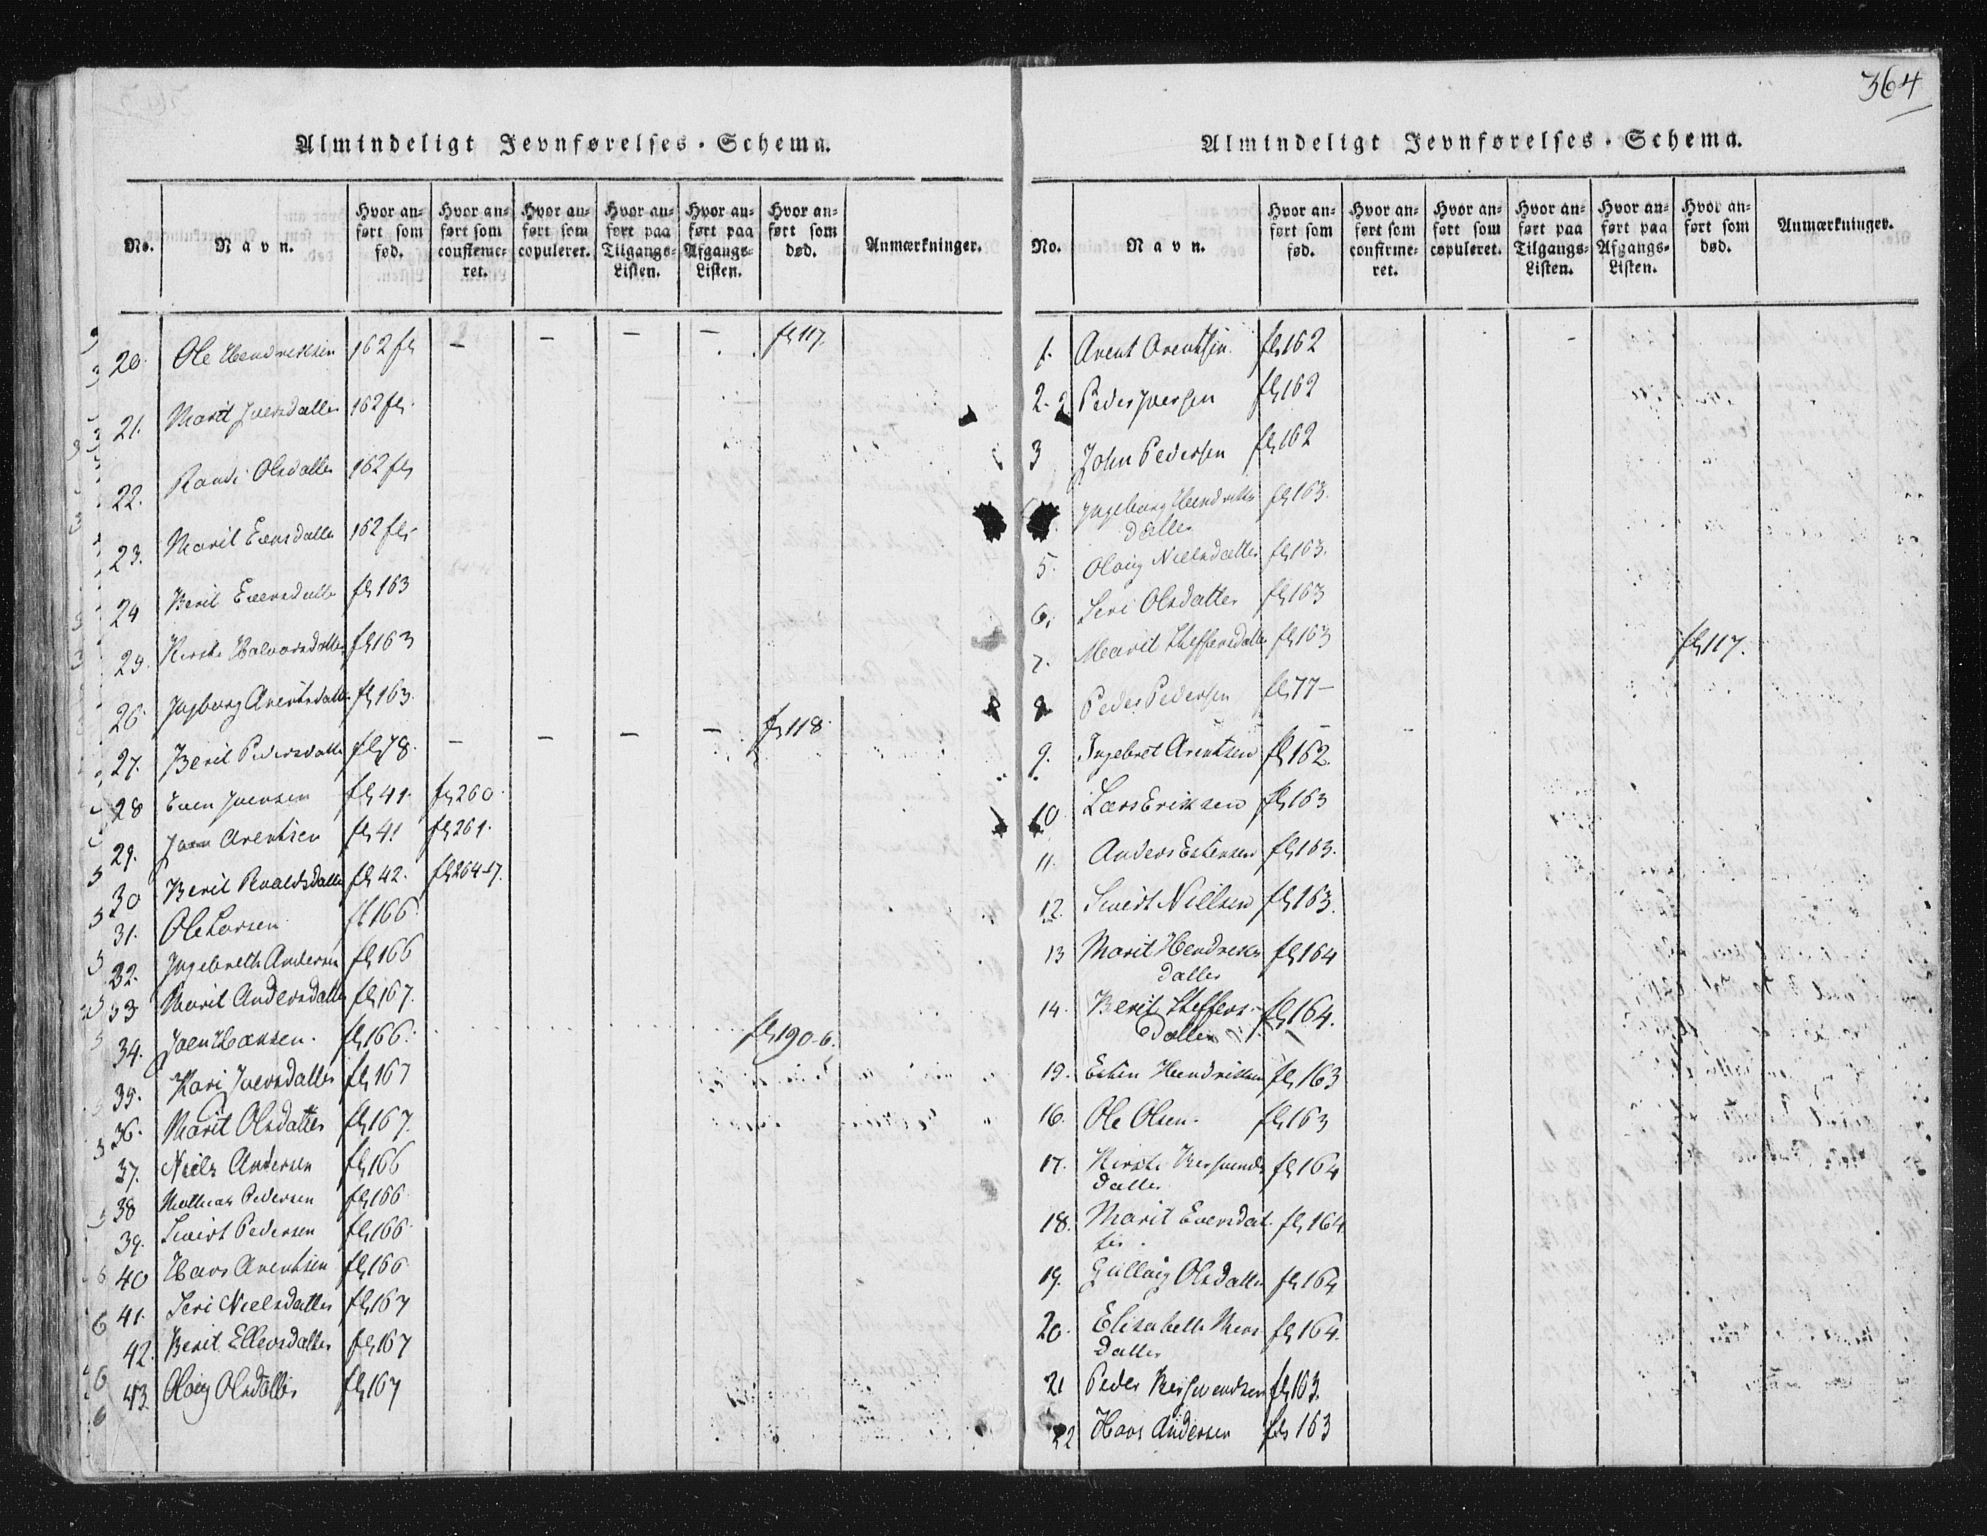 364
Almindeligt Jevnførelses-Schema.
No. Navn. Hvor anført som fød. Hvor anført som confirmeret. Hvor anført som copuleret. Hvor anført paa Tilgangs-Listen. Hvor anført paa Afgangs-Listen. Hvor anført som død. Anmærkninger.
20. Ole Hendriksen 162 fl — — — — fl 117.
21. Marit Iversdatter 162 fl.
22. Randi Olsdatter 162 fl
23. Marit Evensdatter 162 fl
24 Berit Eversdatter fl 163
25. Kirsti Halvorsdatter fl 163
26 Ingborg Arentsdatter fl 163.
27. Berit Pedersdatter fl 78. — — — — fl 118
28 Even Iversen fl 41. fl 260.
29. Joen Arentsen fl 41 fl 261.
30 Berit Roaldsdatter fl 42. fl 264-7.
31. Ole Larsen fl 166.
32. Ingebreth Andersen fl 166
33 Marit Andersdatter fl 167.
34. Joen Haksen. fl 166. fl 190-6.
35. Kari Iversdatter fl 167
36. Marit Olsdatter fl 167.
37. Niels Andersen fl 166
38 Mathias Pedersen fl 166
39. Sivert Pedersen fl 166
40 Hans Arentsen fl 166
41. Seri Nielsdatter fl 167
42. Berit Ellevsdatter fl 167
43. Oloug Olsdatter fl 167
Almindeligt Jevnførelses-Schema.
No. Navn. Hvor anført som fød. Hvor anført som confirmeret. Hvor anført som copuleret. Hvor anført paa Tilgangs-Listen. Hvor anført paa Afgangs-Listen. Hvor anført som død. Anmærkninger.
1. Arent Arentsen fl 162
2. Peder Iversen fl 162
3 John Pedersen fl 162
Ingeborg Hendriks-
datter fl 163.
5. Oloug Nielsdatter fl 163.
6. Seri Olsdatter fl 163
7. Marit Steffensdatter fl 163 fl 117.
8 Peder Pedersen fl 77 —
9. Ingebret Arentsen fl 162.
10 Lars Eriksen fl 163
11. Anders Estensen fl 163.
12. Sivert Nielsen fl 163.
13 Marit Hendriks
datter fl 164
14. Berit Steffens-
datter fl 164.
15. Esten Hendriksen fl 163
16. Ole Olsen. fl 163
17. Kirsti Bersvends
datter fl 164
18. Marit Eversdat-
ter. fl 164
19. Gulloug Olsdatter fl 164
20. Elisabeth
datter fl 164.
21 Peder Bersvendsen fl 163.
22 Hans Andersen fl 163